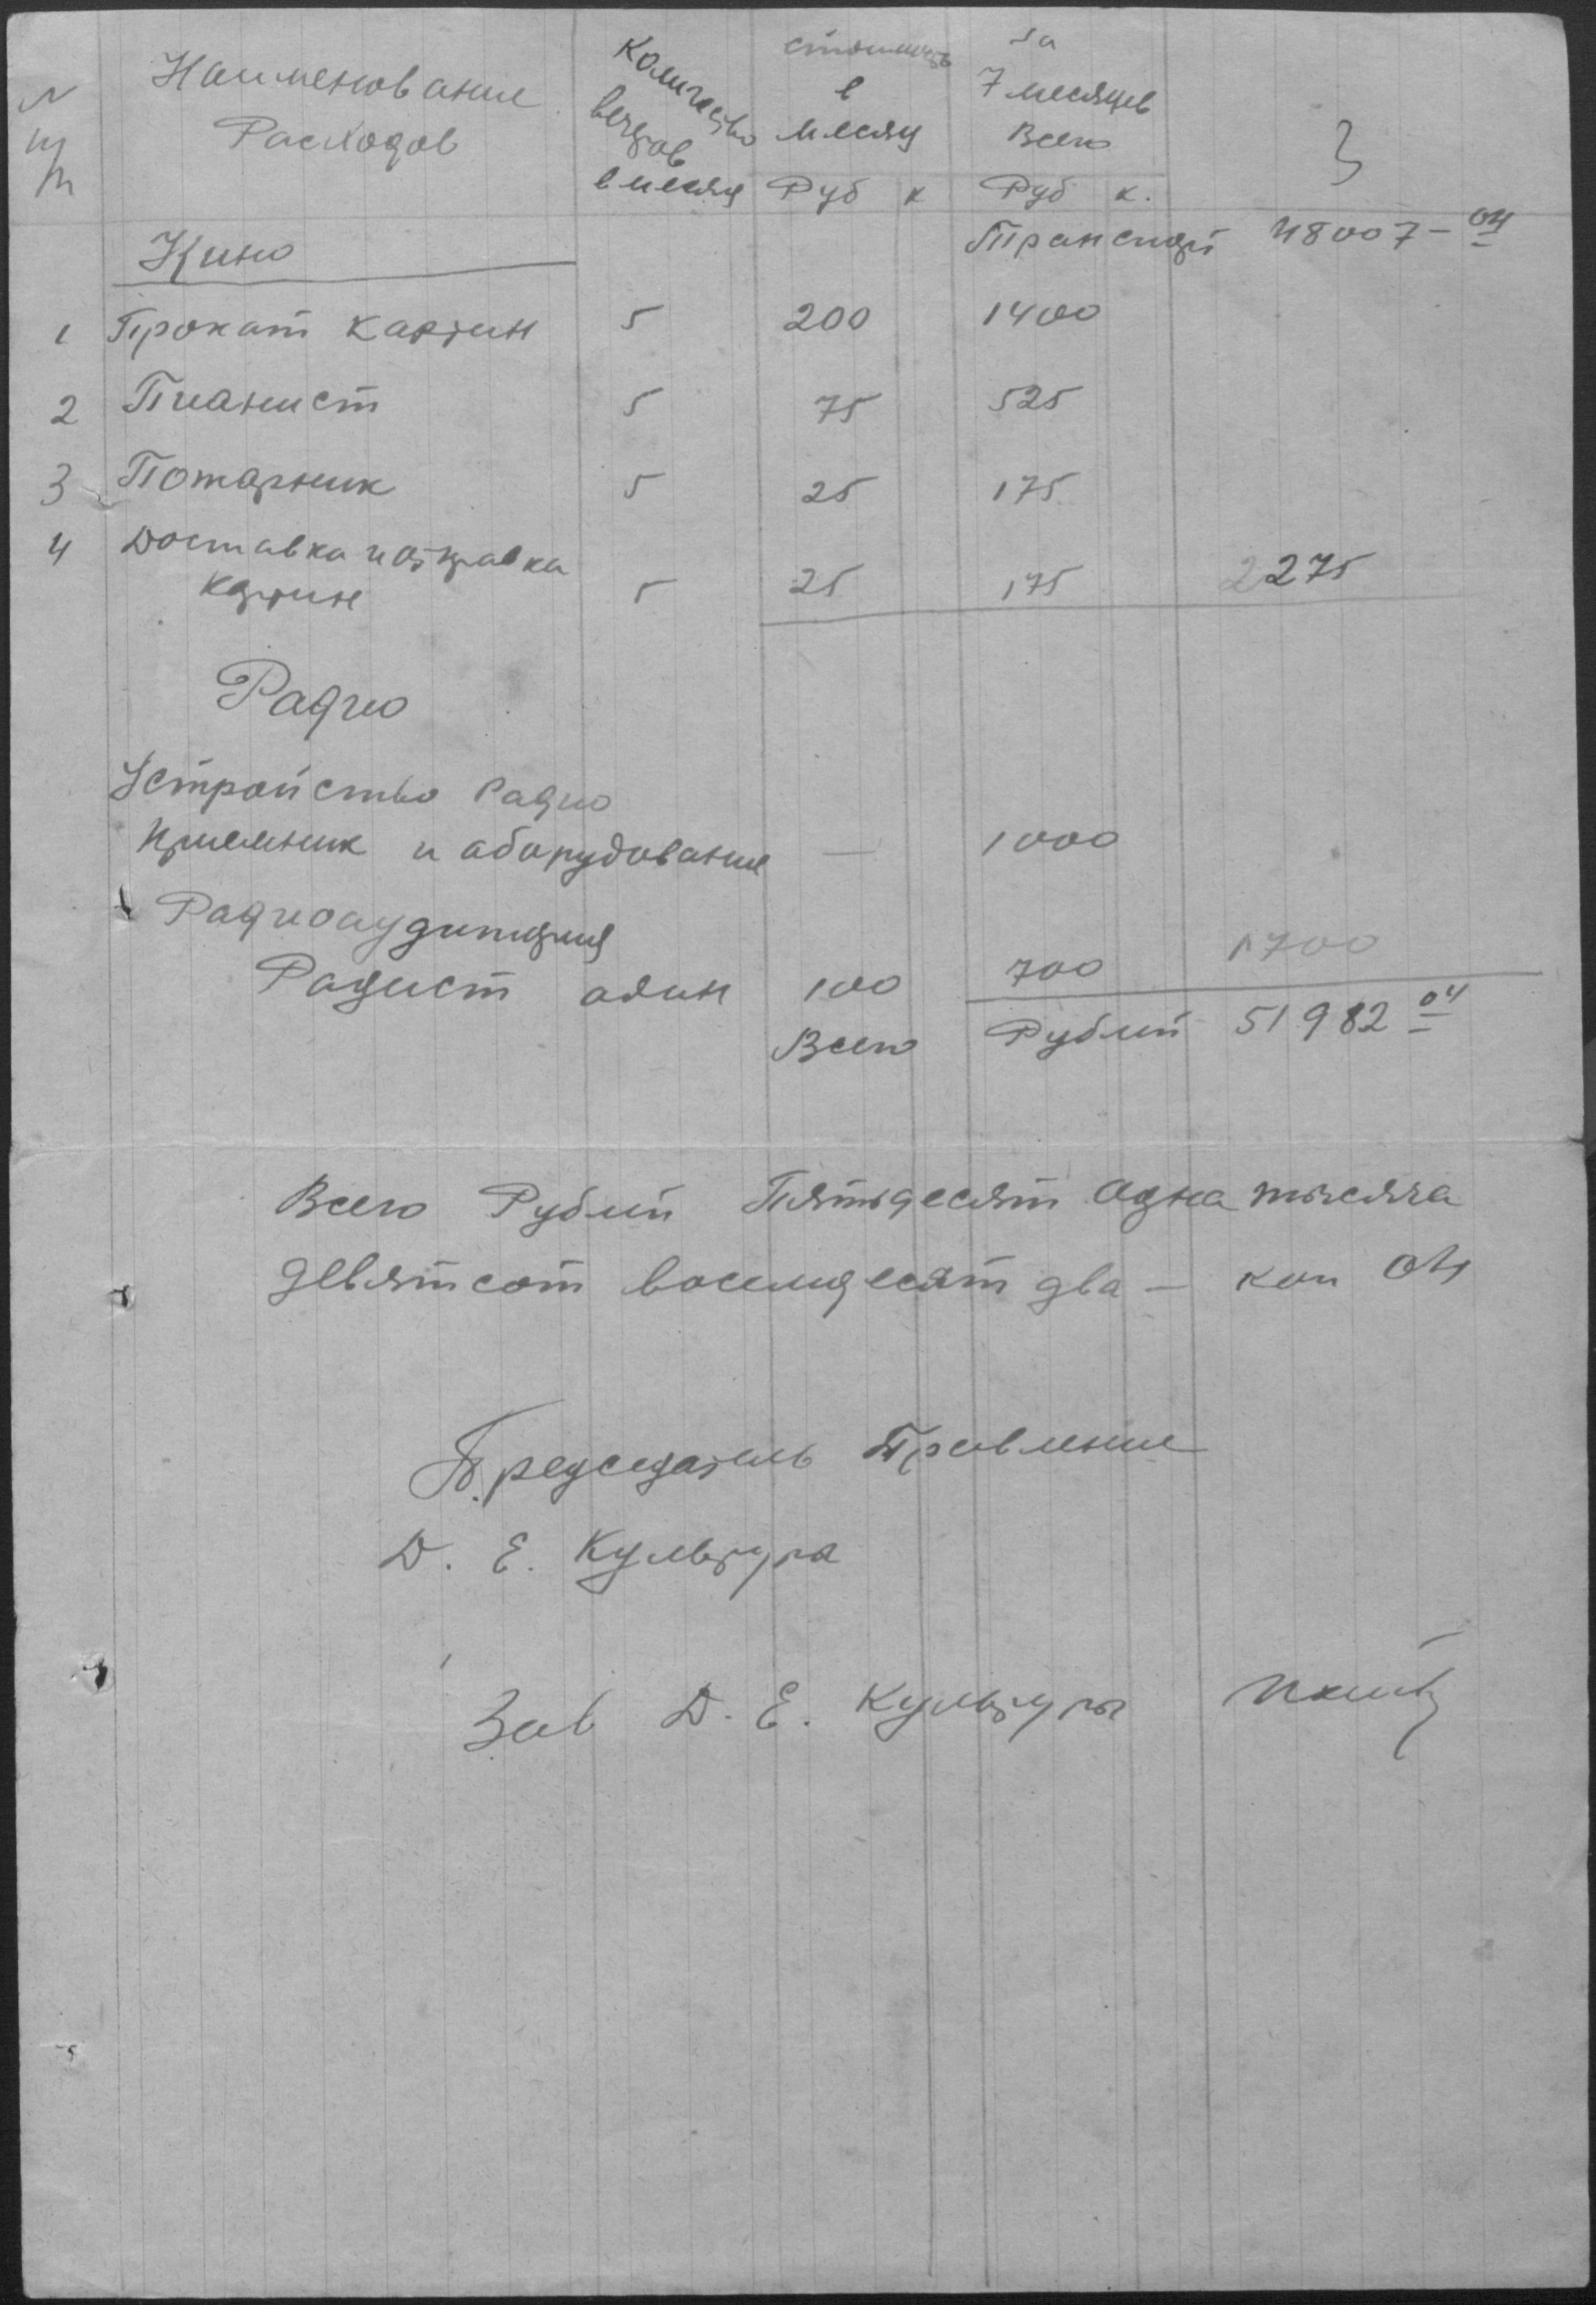 N Наименование Количество стоимость за
п/п Расходов вечеров в 7 месяцев
в месяц месяц Всего 3
Руб к Руб к.
Кино Транспорт 48007-04
1 Прокат картин 5 200 1400
2 Пианист 5 75 525
3 Пожарник 5 25 175
4 Доставка и отправка
картин 5 25 175 2275
Радио
Устройство Радио
приемник и аборудование — 1000
Радиоаудитория
Радист адин 100 700 1700
Всего Рублей 51982 04
Всего Рублей Пятьдесят Одна тысяча
девятсот восемдесят два — коп 04
Председатель Правление
Д. Е. Культура
Зав Д. Е. Культуры